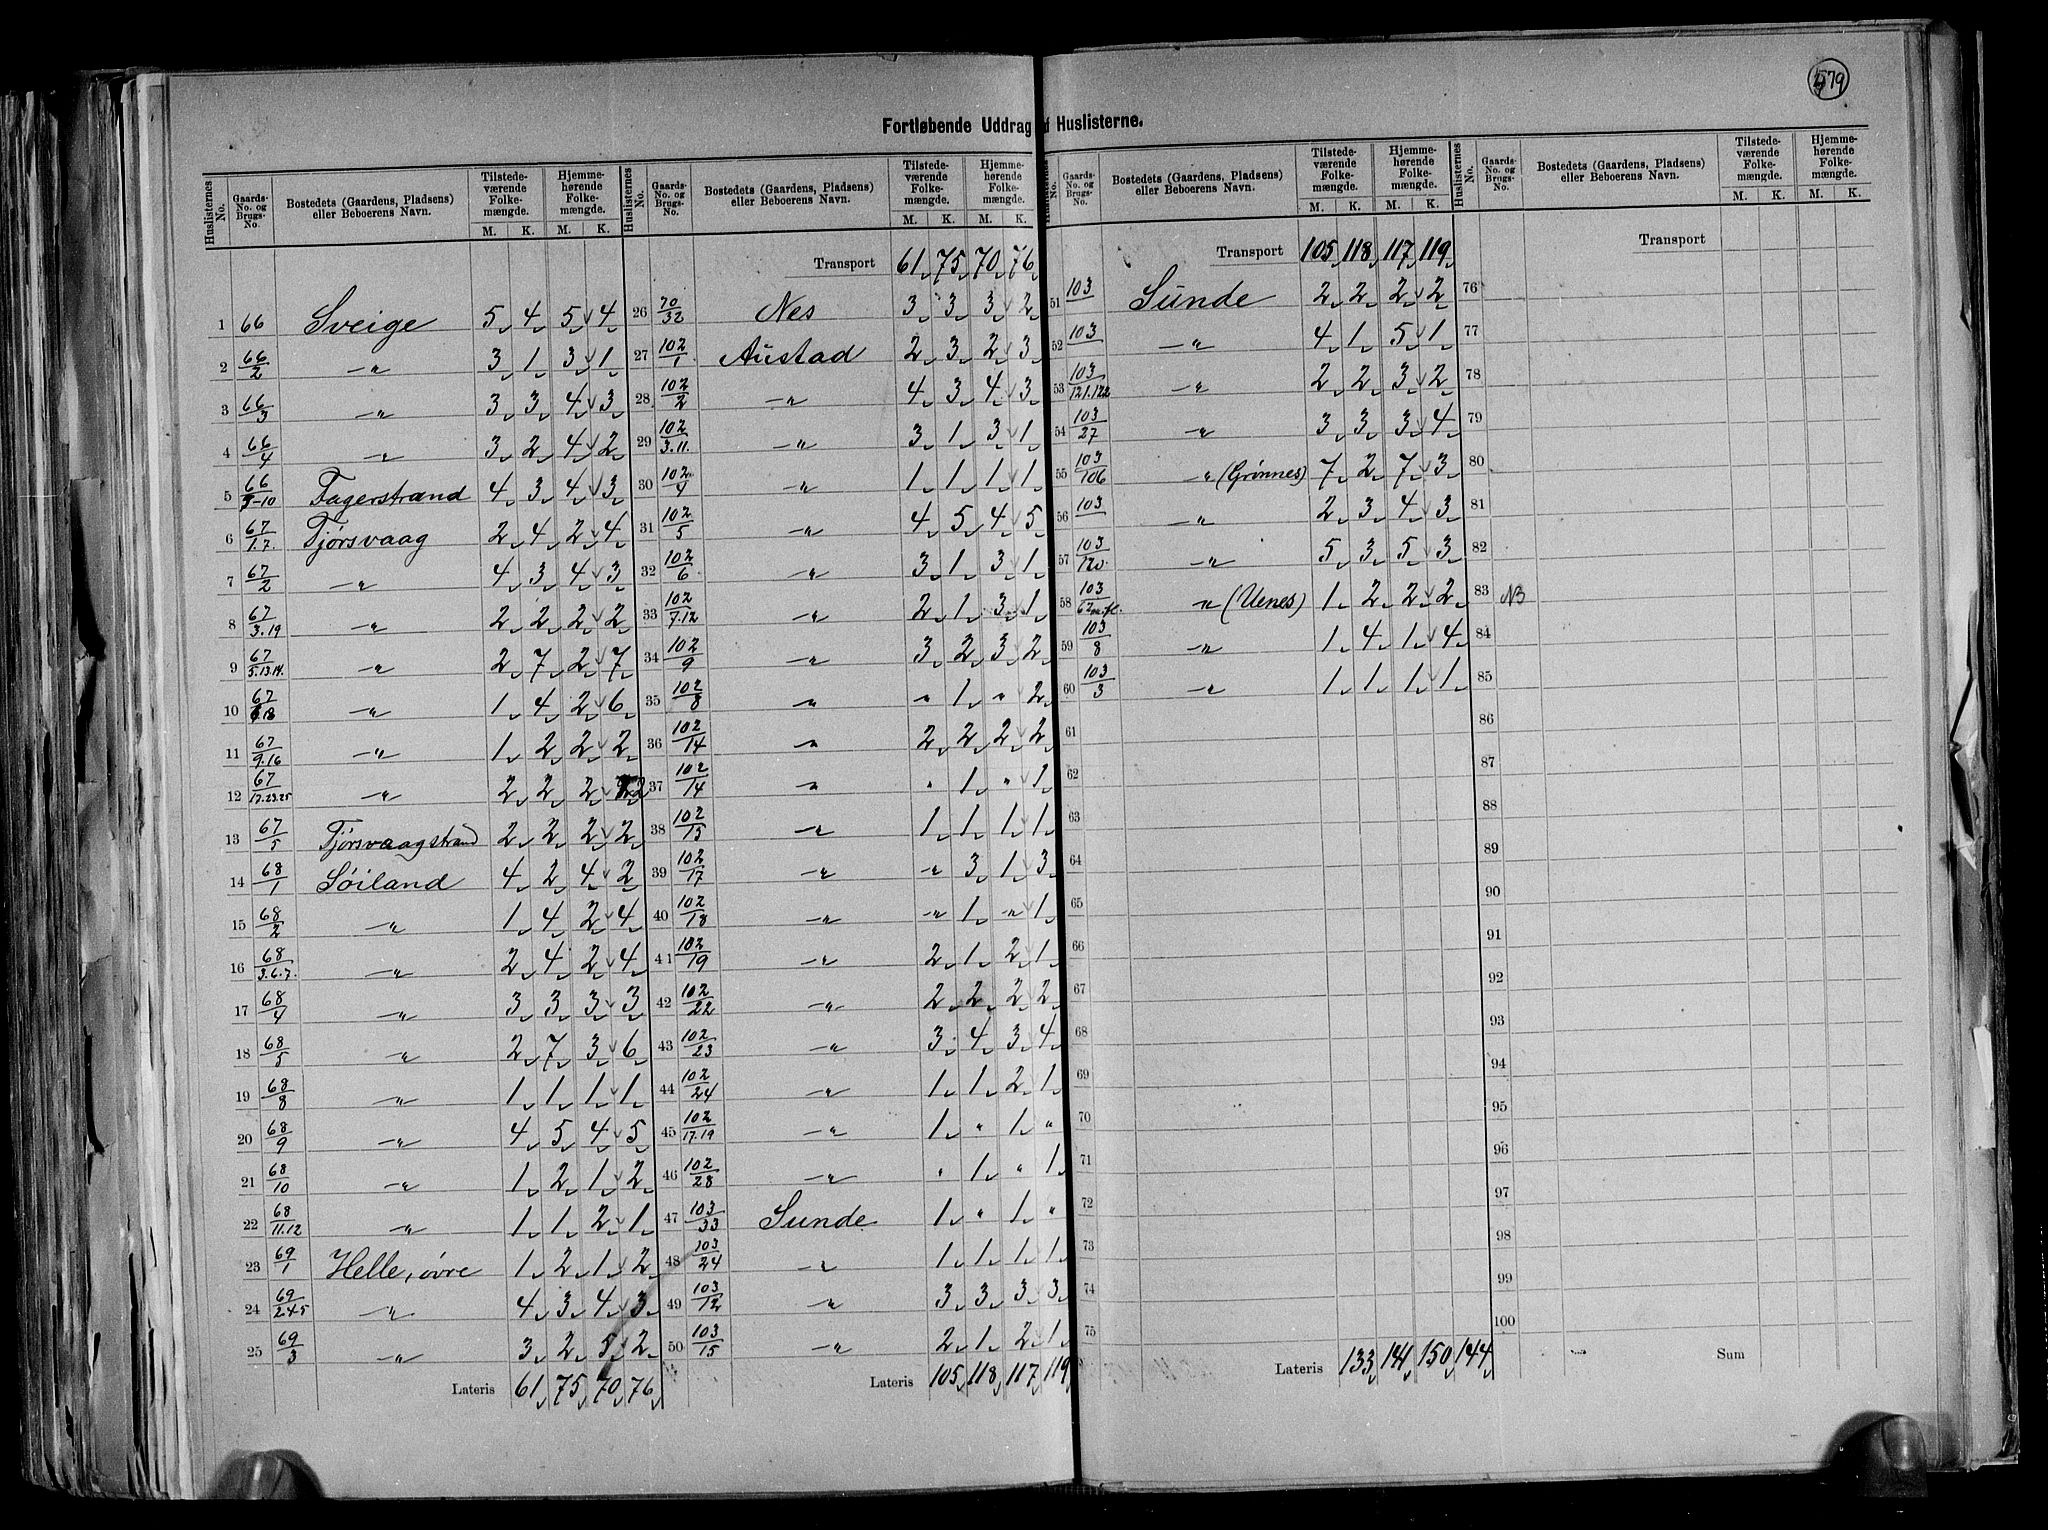 579
Fortløbende Uddrag af Huslisterne.
Huslisternes No. Gaards-No. og Brugs-No. Bostedets (Gaardens, Pladsens) eller Beboerens Navn. Tilstedeværende Folkemængde. M. K. Hjemmehørende Folkemængde. M. K.
1 66 Sveige 5 4 5 4
2 66/2 -"- 3 1 3 1
3 66/3 -"- 3 3 4 3
4 66/4 -"- 3 2 4 2
5 66/9-10 Fagerstrand 4 3 4 3
6 67/1.7. Tjørsvaag 2 4 2 4
7 67/2 -"- 4 3 4 3
8 67/3.19 -"- 2 2 2 2
9 67/5.13.14. -"- 2 7 2 7
10 67/6.18 -"- 1 4 2 6
11 67/9.16 -"- 1 2 2 2
12 67/17.23.25 -"- 2 2 2 2
13 67/5 Tjørsvaagstrand 2 2 2 2
14 68/1 Søiland 4 2 4 2
15 68/2 -"- 1 4 2 4
16 68/3.6.7. -"- 2 4 2 4
17 68/4 -"- 3 3 3 3
18 68/5 -"- 2 7 3 6
19 68/8 -"- 1 1 1 1
20 68/9 -"- 4 5 4 5
21 68/10 -"- 1 2 1 2
22 68/11.12 -"- 1 1 2 1
23 69/1 Helle, øvre 1 2 1 2
24 69/2.4.5 -"- 4 3 4 3
25 69/3 -"- 3 2 5 2
Lateris 61 75 70 76
Huslisternes No. Gaards-No. og Brugs-No. Bostedets (Gaardens, Pladsens) eller Beboerens Navn. Tilstedeværende Folkemængde. M. K. Hjemmehørende Folkemængde. M. K.
Transport 61 75 70 76
26 70/32 Nes 3 3 3 2
27 102/1 Austad 2 3 2 3
28 102/2 -"- 4 3 4 3
29 102/3.11. -"- 3 1 3 1
30 102/4 -"- 1 1 1 1
31 102/5 -"- 4 5 4 5
32 102/6 -"- 3 1 3 1
33 102/7.12 -"- 2 1 3 1
34 102/9 -"- 3 2 3 2
35 102/8 " " 1 " 2
36 102/14 " 2 2 2 2
37 102/14 " " 1 " 1
38 102/15 -"- 1 1 1 1
39 102/17 -"- -"- 3 1 3
40 102/18 -"- -"- 1 -"- 1
41 102/19 -"- 2 1 2 1
42 102/22 -"- 2 2 2 2
43 102/23 -"- 3 4 3 4
44 102/24 -"- 1 1 2 1
45 102/17.19 -"- 1 " 1 "
46 102/28 -"- " 1 " 1
47 103/33 Sunde 1 " 1 "
48 103/24 -"- 1 1 1 1
49 103/12 -"- 3 3 3 3
50 103/15 -"- 2 1 2 1
Lateris 105 118 117 119
No. Gaards-No. og Brugs-No. Bostedets (Gaardens, Pladsens) eller Beboerens Navn. Tilstedeværende Folkemængde. M. K. Hjemmehørende Folkemængde. M. K.
Transport 105 118 117 119
51 103 Sunde 2 2 2 2
52 103 -"- 4 1 5 1
53 103/121.122 -"- 2 2 3 2
54 103/27 -"- 3 3 3 4
55 103/106 -"- (Grønnes) 7 2 7 3
56 103 -"- 2 3 4 3
57 103/120. -"- 5 3 5 3
58 103/62 m.fl. -"- (Uenes) 1 2 2 2
59 103/8 -"- 1 4 1 4
60 103/3 -"- 1 1 1 1
61
62
63
64
65
66
67
68
69
70
71
72
73
74
75
Lateris 133 141 150 144
Huslisternes No. Gaards-No. og Brugs-No. Bostedets (Gaardens, Pladsens) eller Beboerens Navn. Tilstedeværende Folkemængde. M. K. Hjemmehørende Folkemængde. M. K.
Transport
76
77
78
79
80
81
82
83 NB
84
85
86
87
88
89
90
91
92
93
94
95
96
97
98
99
100
Sum